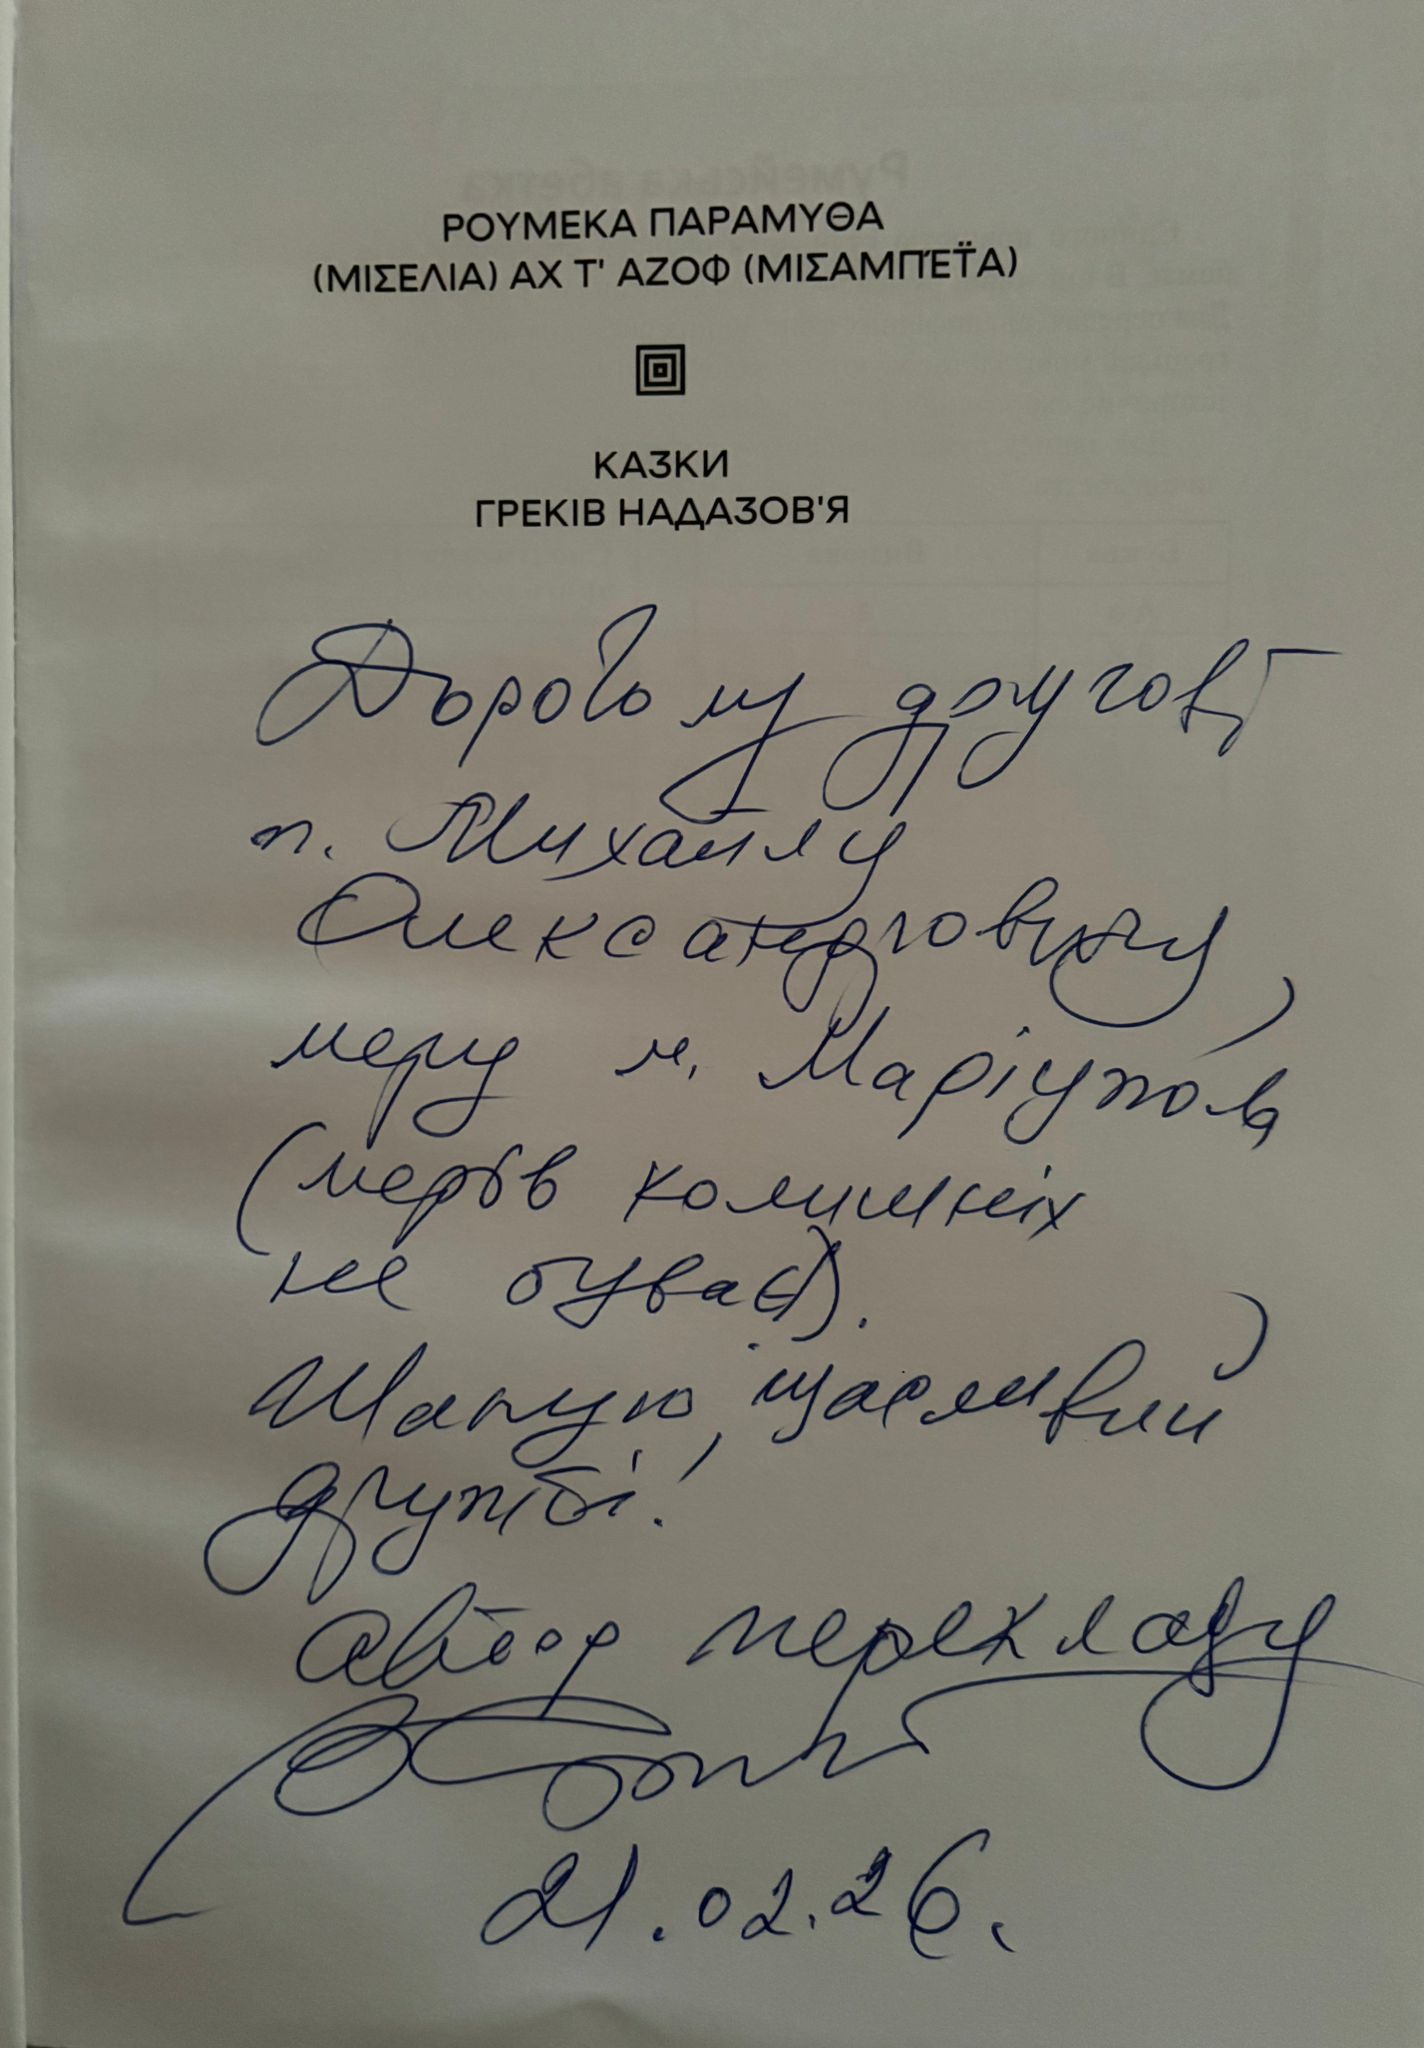 ΡΟΥΜΕΚΑ ΠΑΡΑΜΥΘΑ
(ΜΙΣΕΛΙΑ) ΑΧ Τ' ΑΖΟΦ (ΜΙΣΑΜΠΈΪΤΑ)
КАЗКИ
ГРЕКІВ НАДАЗОВ'Я
Дорогому другові
п. Михайлу
Олександровичу,
меру м. Маріуполь
(мерів колишніх
не буває).
Шаную, щасливий
дружбі!
автор перекладу
21.02.26.